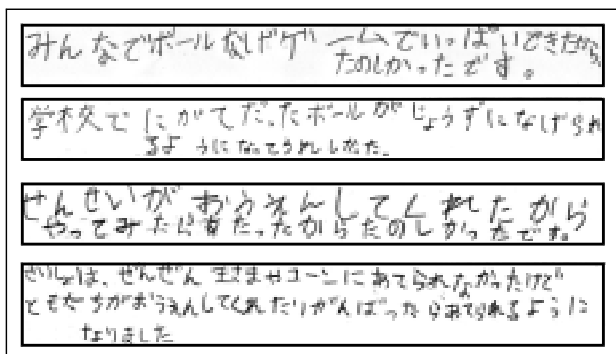 みんなでボールなげゲームでいっぱいできたから、
たのしかったです。
学校で にがてだったボールが じょうずになげられ
るよ うになってうれしかた。
せんせいが おうえんしてくれたから
やってみたらすたったからたのしかったです。
さいしょは、ぜんぜん コーンにあてられなかったけど
ともだちがおうえんしてくれたりがんばったらあてられるように
なりました